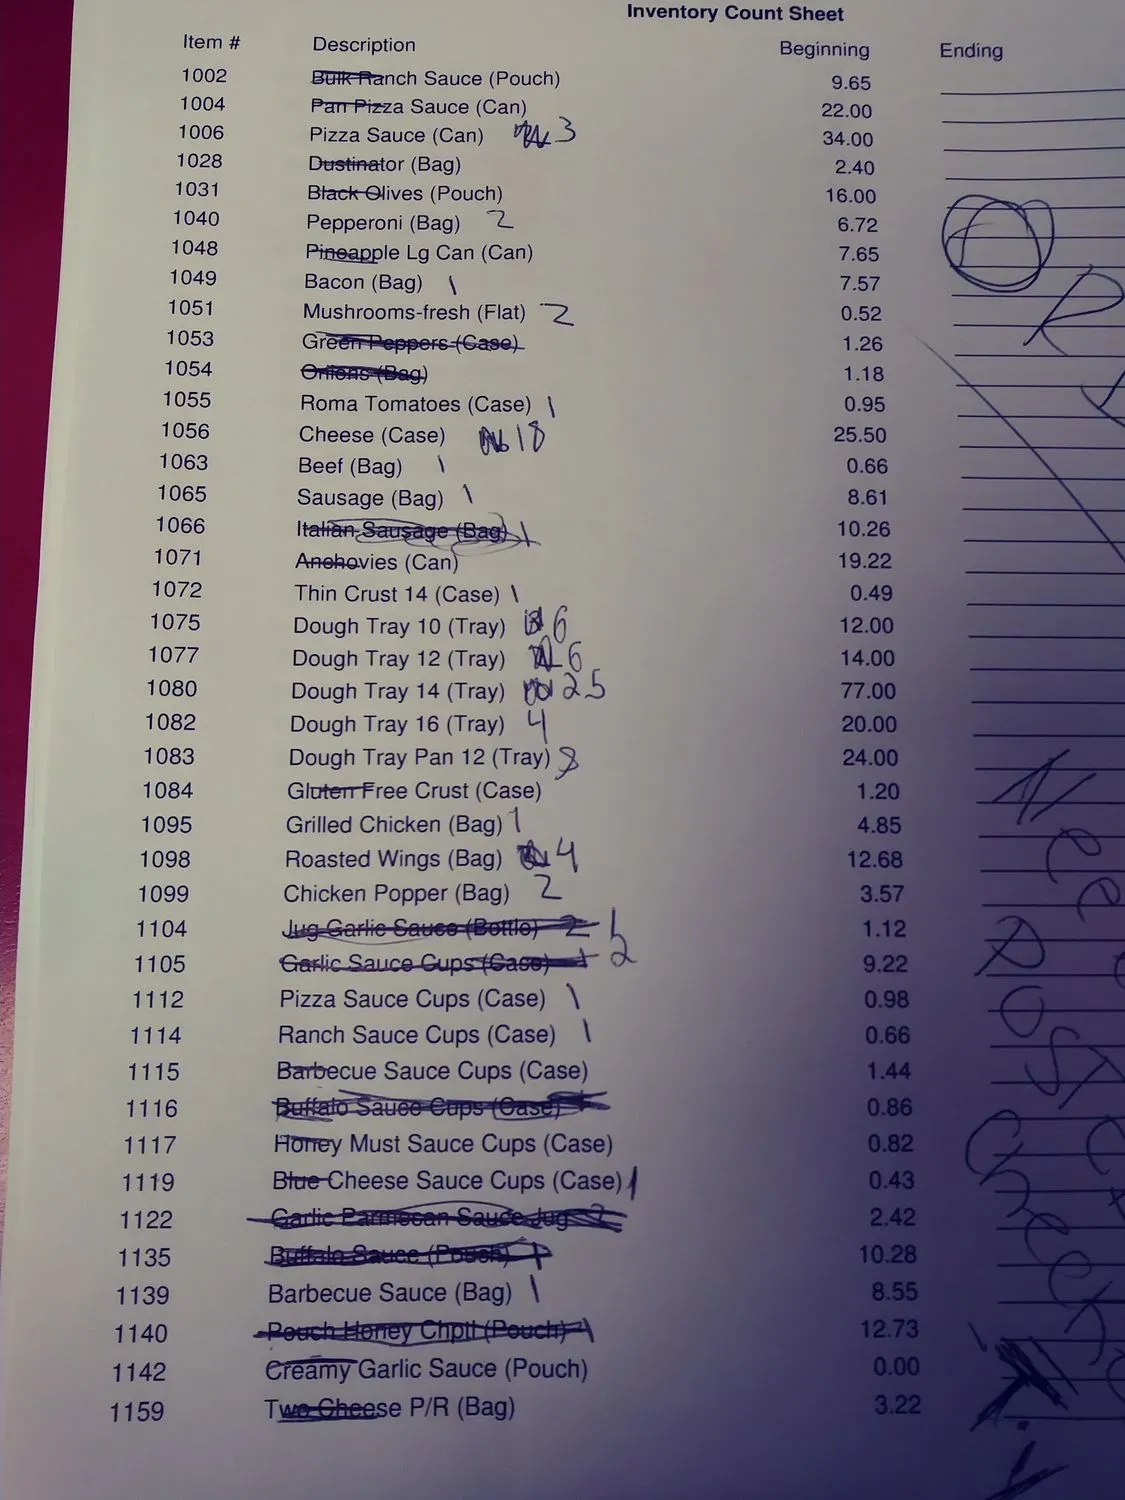 Inventory Count Sheet
Item # Description Beginning Ending
1002 Bulk Ranch Sauce (Pouch) 9.65
1004 Pan Pizza Sauce (Can) 22.00
1006 Pizza Sauce (Can) 3 34.00
1028 Dustinator (Bag) 2.40
1031 Black Olives (Pouch) 16.00
1040 Pepperoni (Bag) 2 6.72
1048 Pineapple Lg Can (Can) 7.65
1049 Bacon (Bag) 1 7.57
1051 Mushrooms-fresh (Flat) 2 0.52
1053 Green Peppers (Case) 1.26
1054 Onions (Bag) 1.18
1055 Roma Tomatoes (Case) 1 0.95
1056 Cheese (Case) 18 25.50
1063 Beef (Bag) 1 0.66
1065 Sausage (Bag) 1 8.61
1066 Italian Sausage (Bag) 1 10.26
1071 Anchovies (Can) 19.22
1072 Thin Crust 14 (Case) 1 0.49
1075 Dough Tray 10 (Tray) 6 12.00
1077 Dough Tray 12 (Tray) 6 14.00
1080 Dough Tray 14 (Tray) 25 77.00
1082 Dough Tray 16 (Tray) 4 20.00
1083 Dough Tray Pan 12 (Tray) 8 24.00
1084 Gluten Free Crust (Case) 1.20
1095 Grilled Chicken (Bag) 1 4.85
1098 Roasted Wings (Bag) 4 12.68
1099 Chicken Popper (Bag) 2 3.57
1104 Jug Garlic Sauce (Bottle) 2 1.12
1105 Garlic Sauce Cups (Case) 1 2 9.22
1112 Pizza Sauce Cups (Case) 1 0.98
1114 Ranch Sauce Cups (Case) 1 0.66
1115 Barbecue Sauce Cups (Case) 1.44
1116 Buffalo Sauce Cups (Case) 0.86
1117 Honey Must Sauce Cups (Case) 0.82
1119 Blue Cheese Sauce Cups (Case) 1 0.43
1122 Garlic Parmesan Sauce Jug 2.42
1135 Buffalo Sauce (Pouch) 1 10.28
1139 Barbecue Sauce (Bag) 1 8.55
1140 Pouch Honey Chptl (Pouch) 1 12.73
1142 Creamy Garlic Sauce (Pouch) 0.00
1159 Two Cheese P/R (Bag) 3.22